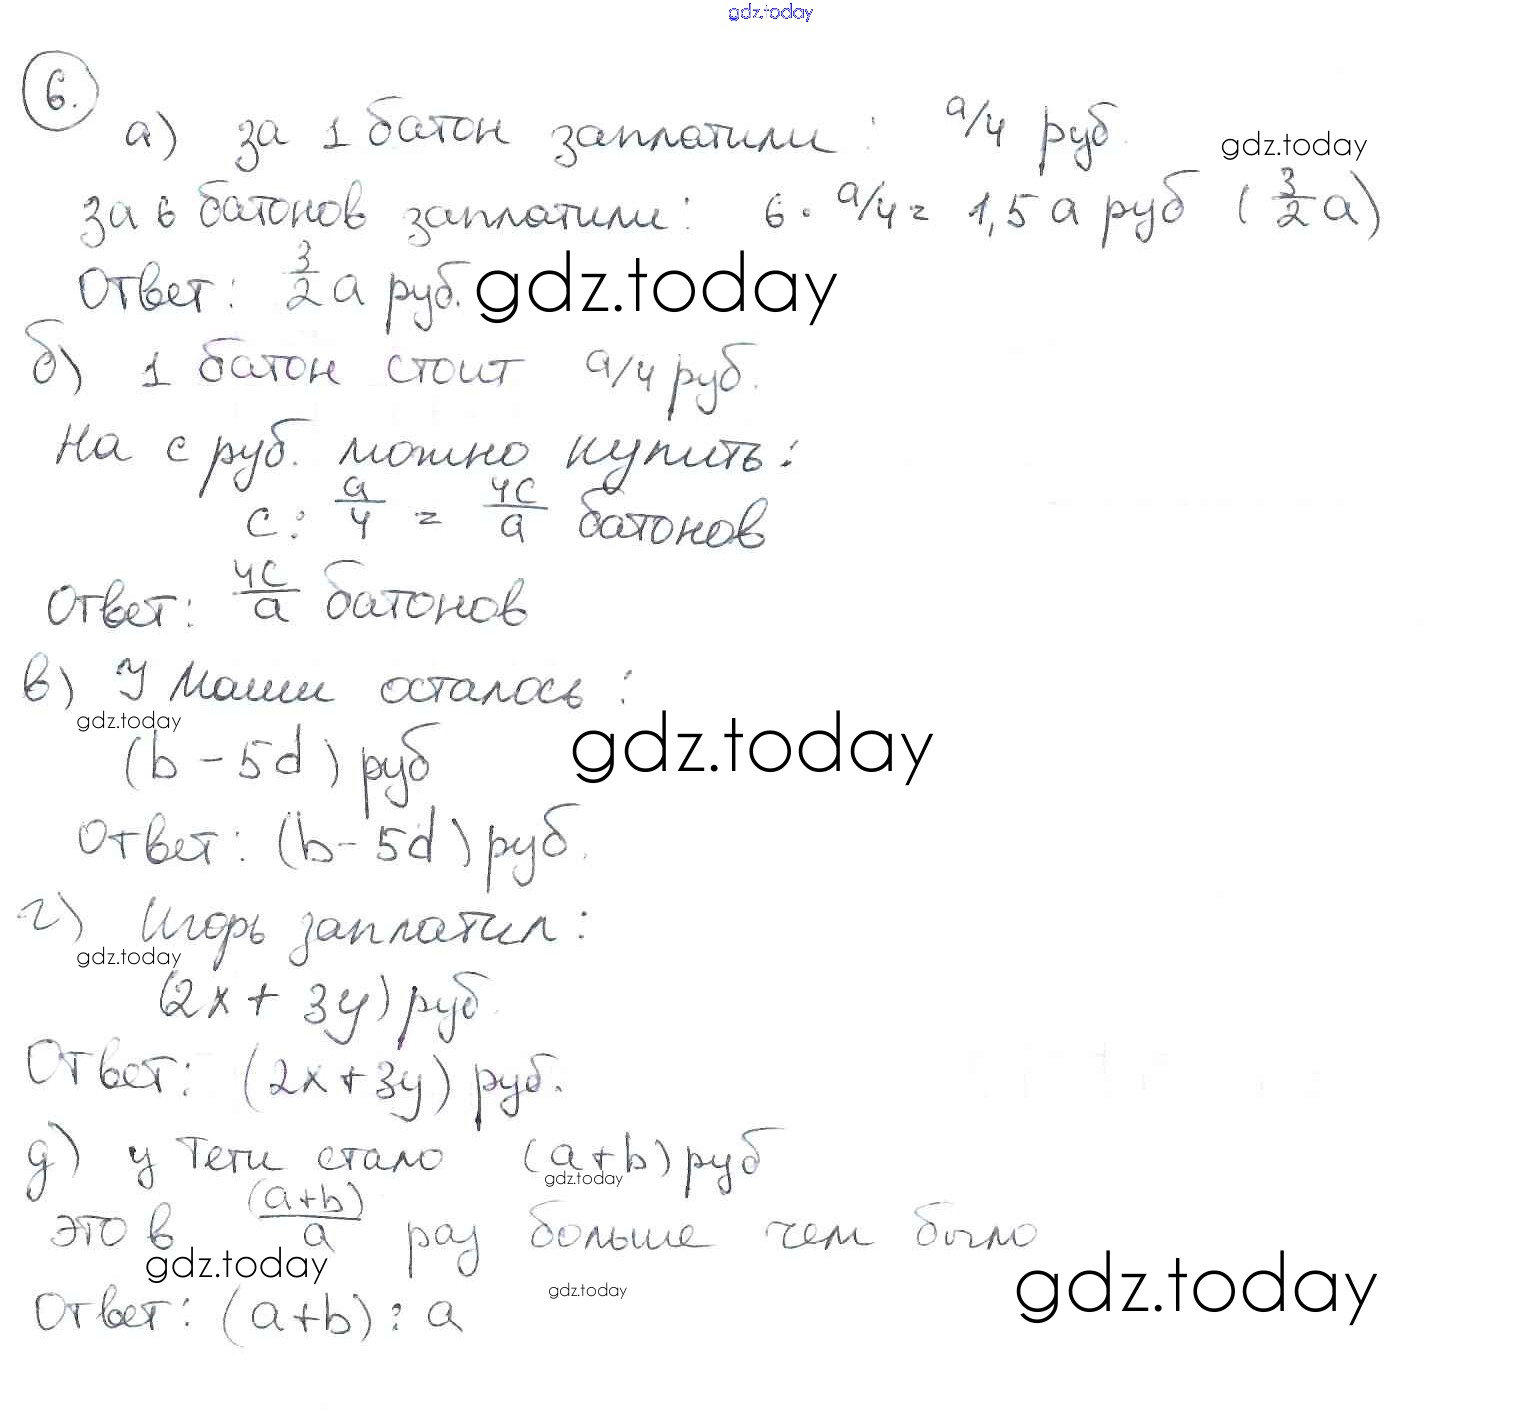 gdz.today
6.
а) за 1 батон заплатили: a/4 руб.
gdz.today
за 6 батонов заплатили: 6 · a/4 = 1,5 a руб (3/2 a)
Ответ: 3/2 a руб.
gdz.today
б) 1 батон стоит a/4 руб.
На c руб. можно купить:
c : a/4 = 4c/a батонов
Ответ: 4c/a батонов
в) У Маши осталось:
gdz.today
(b - 5d) руб
gdz.today
Ответ: (b - 5d) руб.
г) Игорь заплатил:
gdz.today
(2x + 3y) руб.
Ответ: (2x + 3y) руб.
д) у Тети стало (a+b) руб
gdz.today
это в (a+b)/a раз больше чем было
gdz.today
gdz.today
gdz.today
Ответ: (a+b) : a